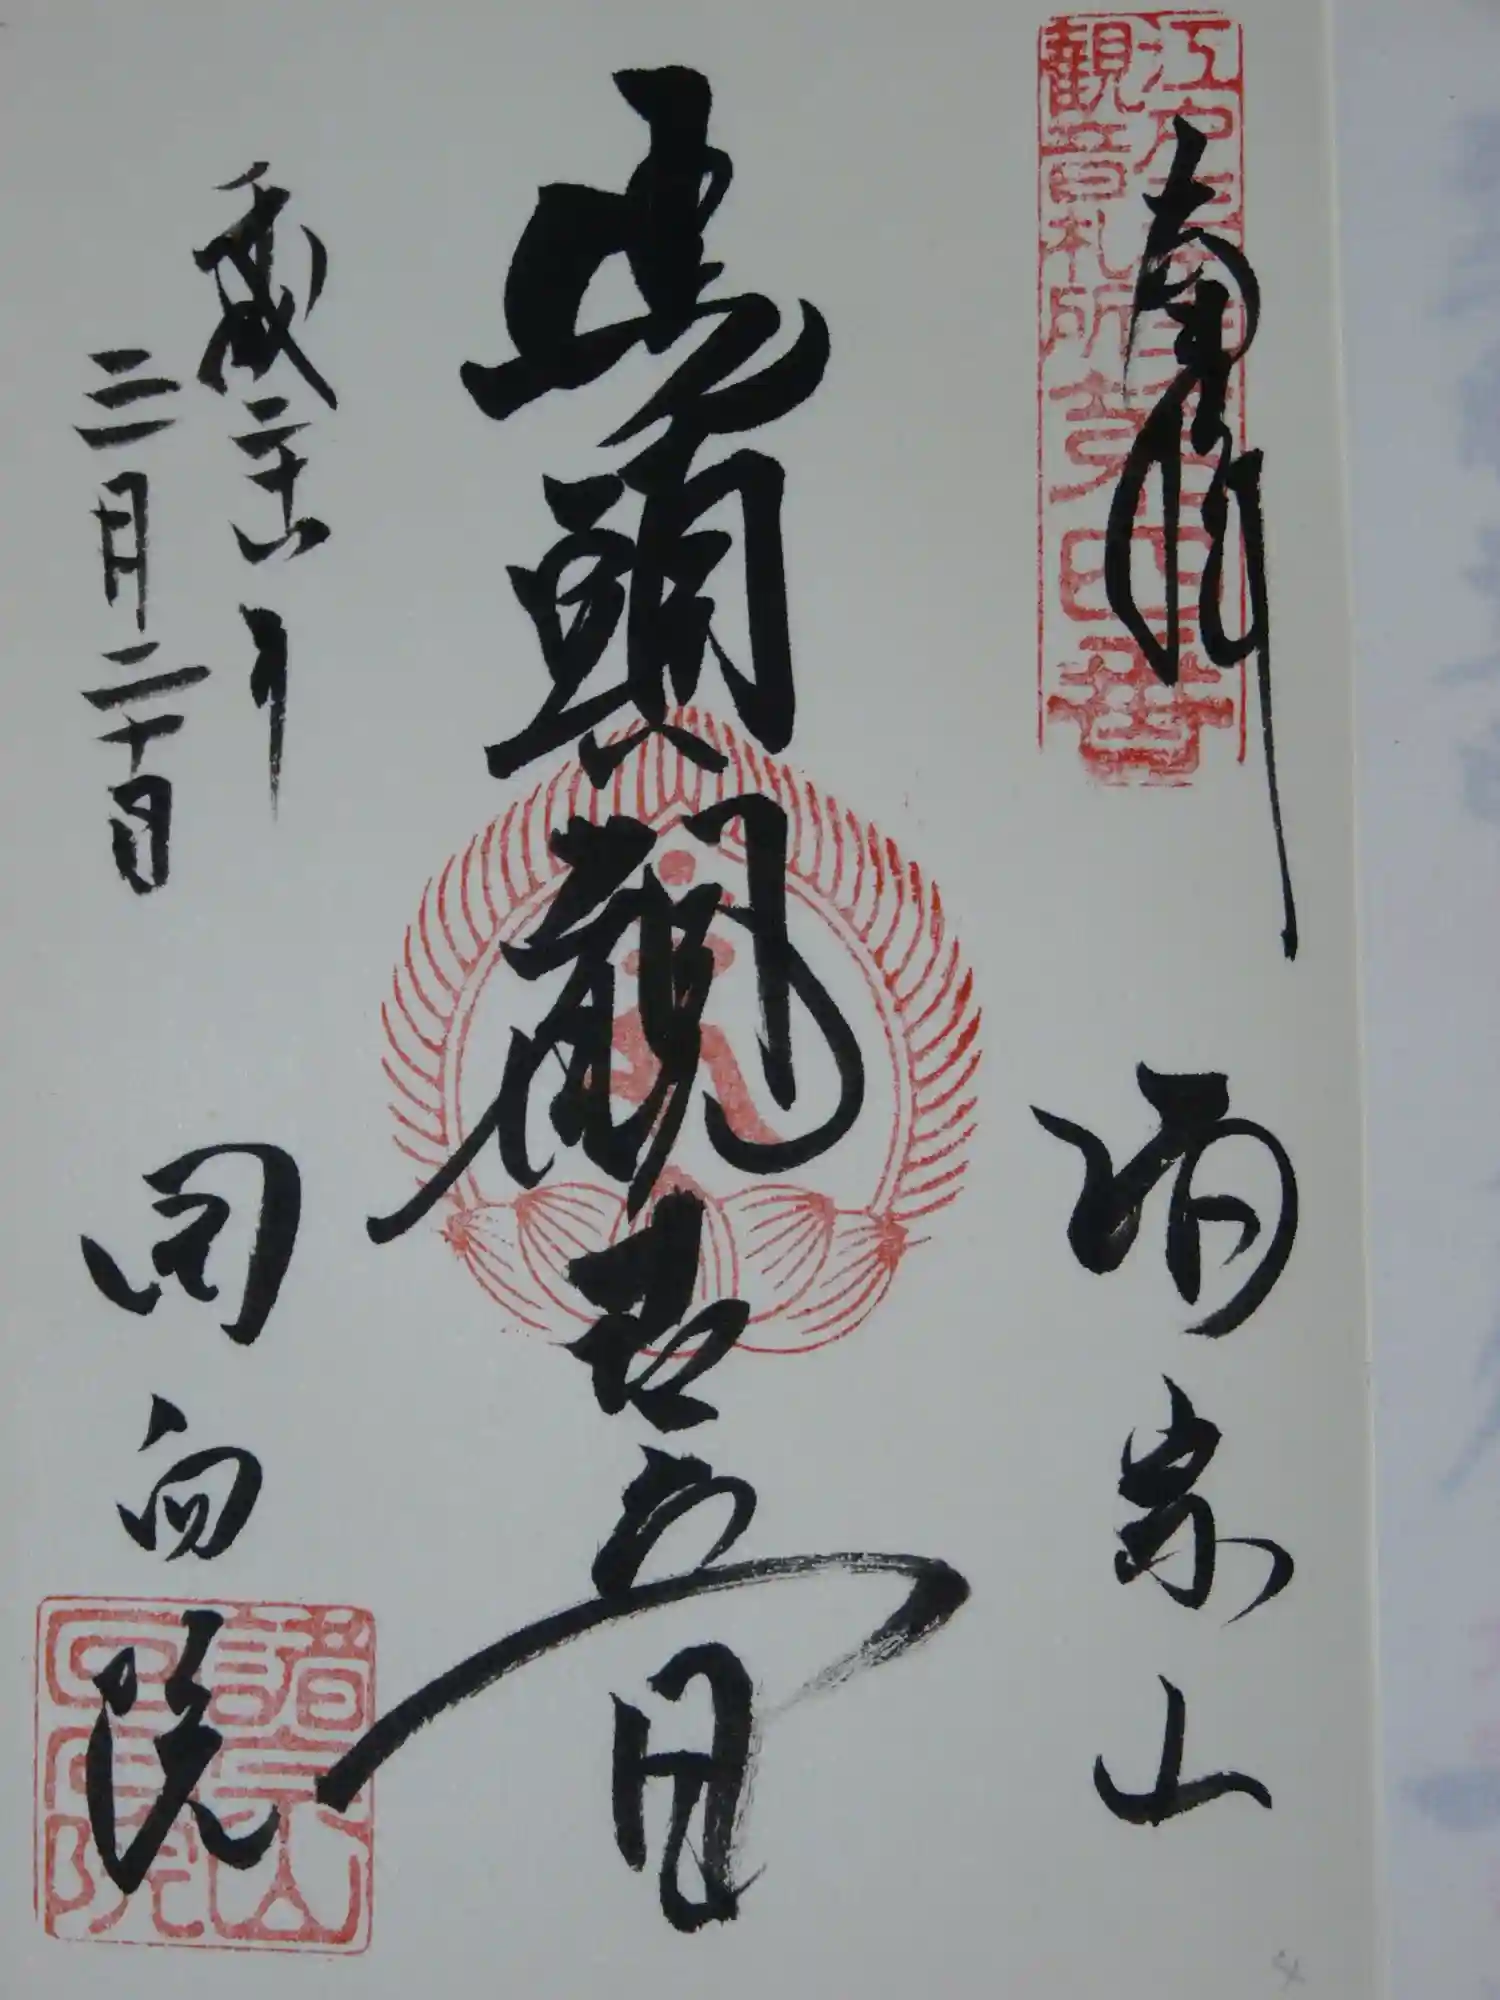 奉拝
諸宗山
江戸三十三
観音札所第四番
馬頭観世音
平成二十六年
二月二十日
回向院
諸宗山
回向院